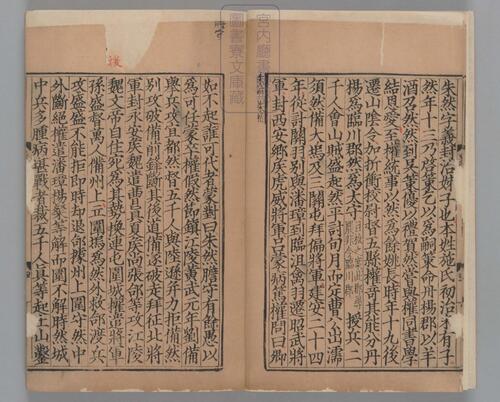 朱然字義封治姊子也本姓施氏初治未有子
然年十三乃啓策乞以爲嗣策命丹楊郡以羊
酒召然然到吳策優以禮賀然嘗與權同書學
結恩愛至權統事以然爲餘姚長時年十九後
遷山陰令加折衝校尉督五縣權奇其能分丹
楊爲臨川郡然爲太守
授兵二
千人會山賊盛起然平討旬月而定曹公出濡
須然備大塢及三關屯拜偏將軍建安二十四
年從討關羽別與潘璋到臨沮禽羽遷昭武將
軍封西安鄉侯虎威將軍呂蒙病篤權問曰卿
如不起誰可代者蒙對曰朱然膽守有餘愚以
爲可任蒙卒權假然節鎮江陵黃武元年劉備
舉兵攻宜都然督五千人與陸遜并力拒備然
別攻破備前鋒斷其後道備遂破走拜征北將
軍封永安侯魏遣曹真夏侯尚張郃等攻江陵
魏文帝自住宛爲其勢援連屯圍城權遣將軍
孫盛督萬人備州上立圍塢爲然外救郃渡兵
攻盛盛不能拒即時却退郃據州上圍守然中
外斷絕權遣潘璋楊粲等解而圍不解時然城
中兵多腫病堪戰者裁五千人真等起土山鑿
宮內廳書
圖書寮文庫藏
後